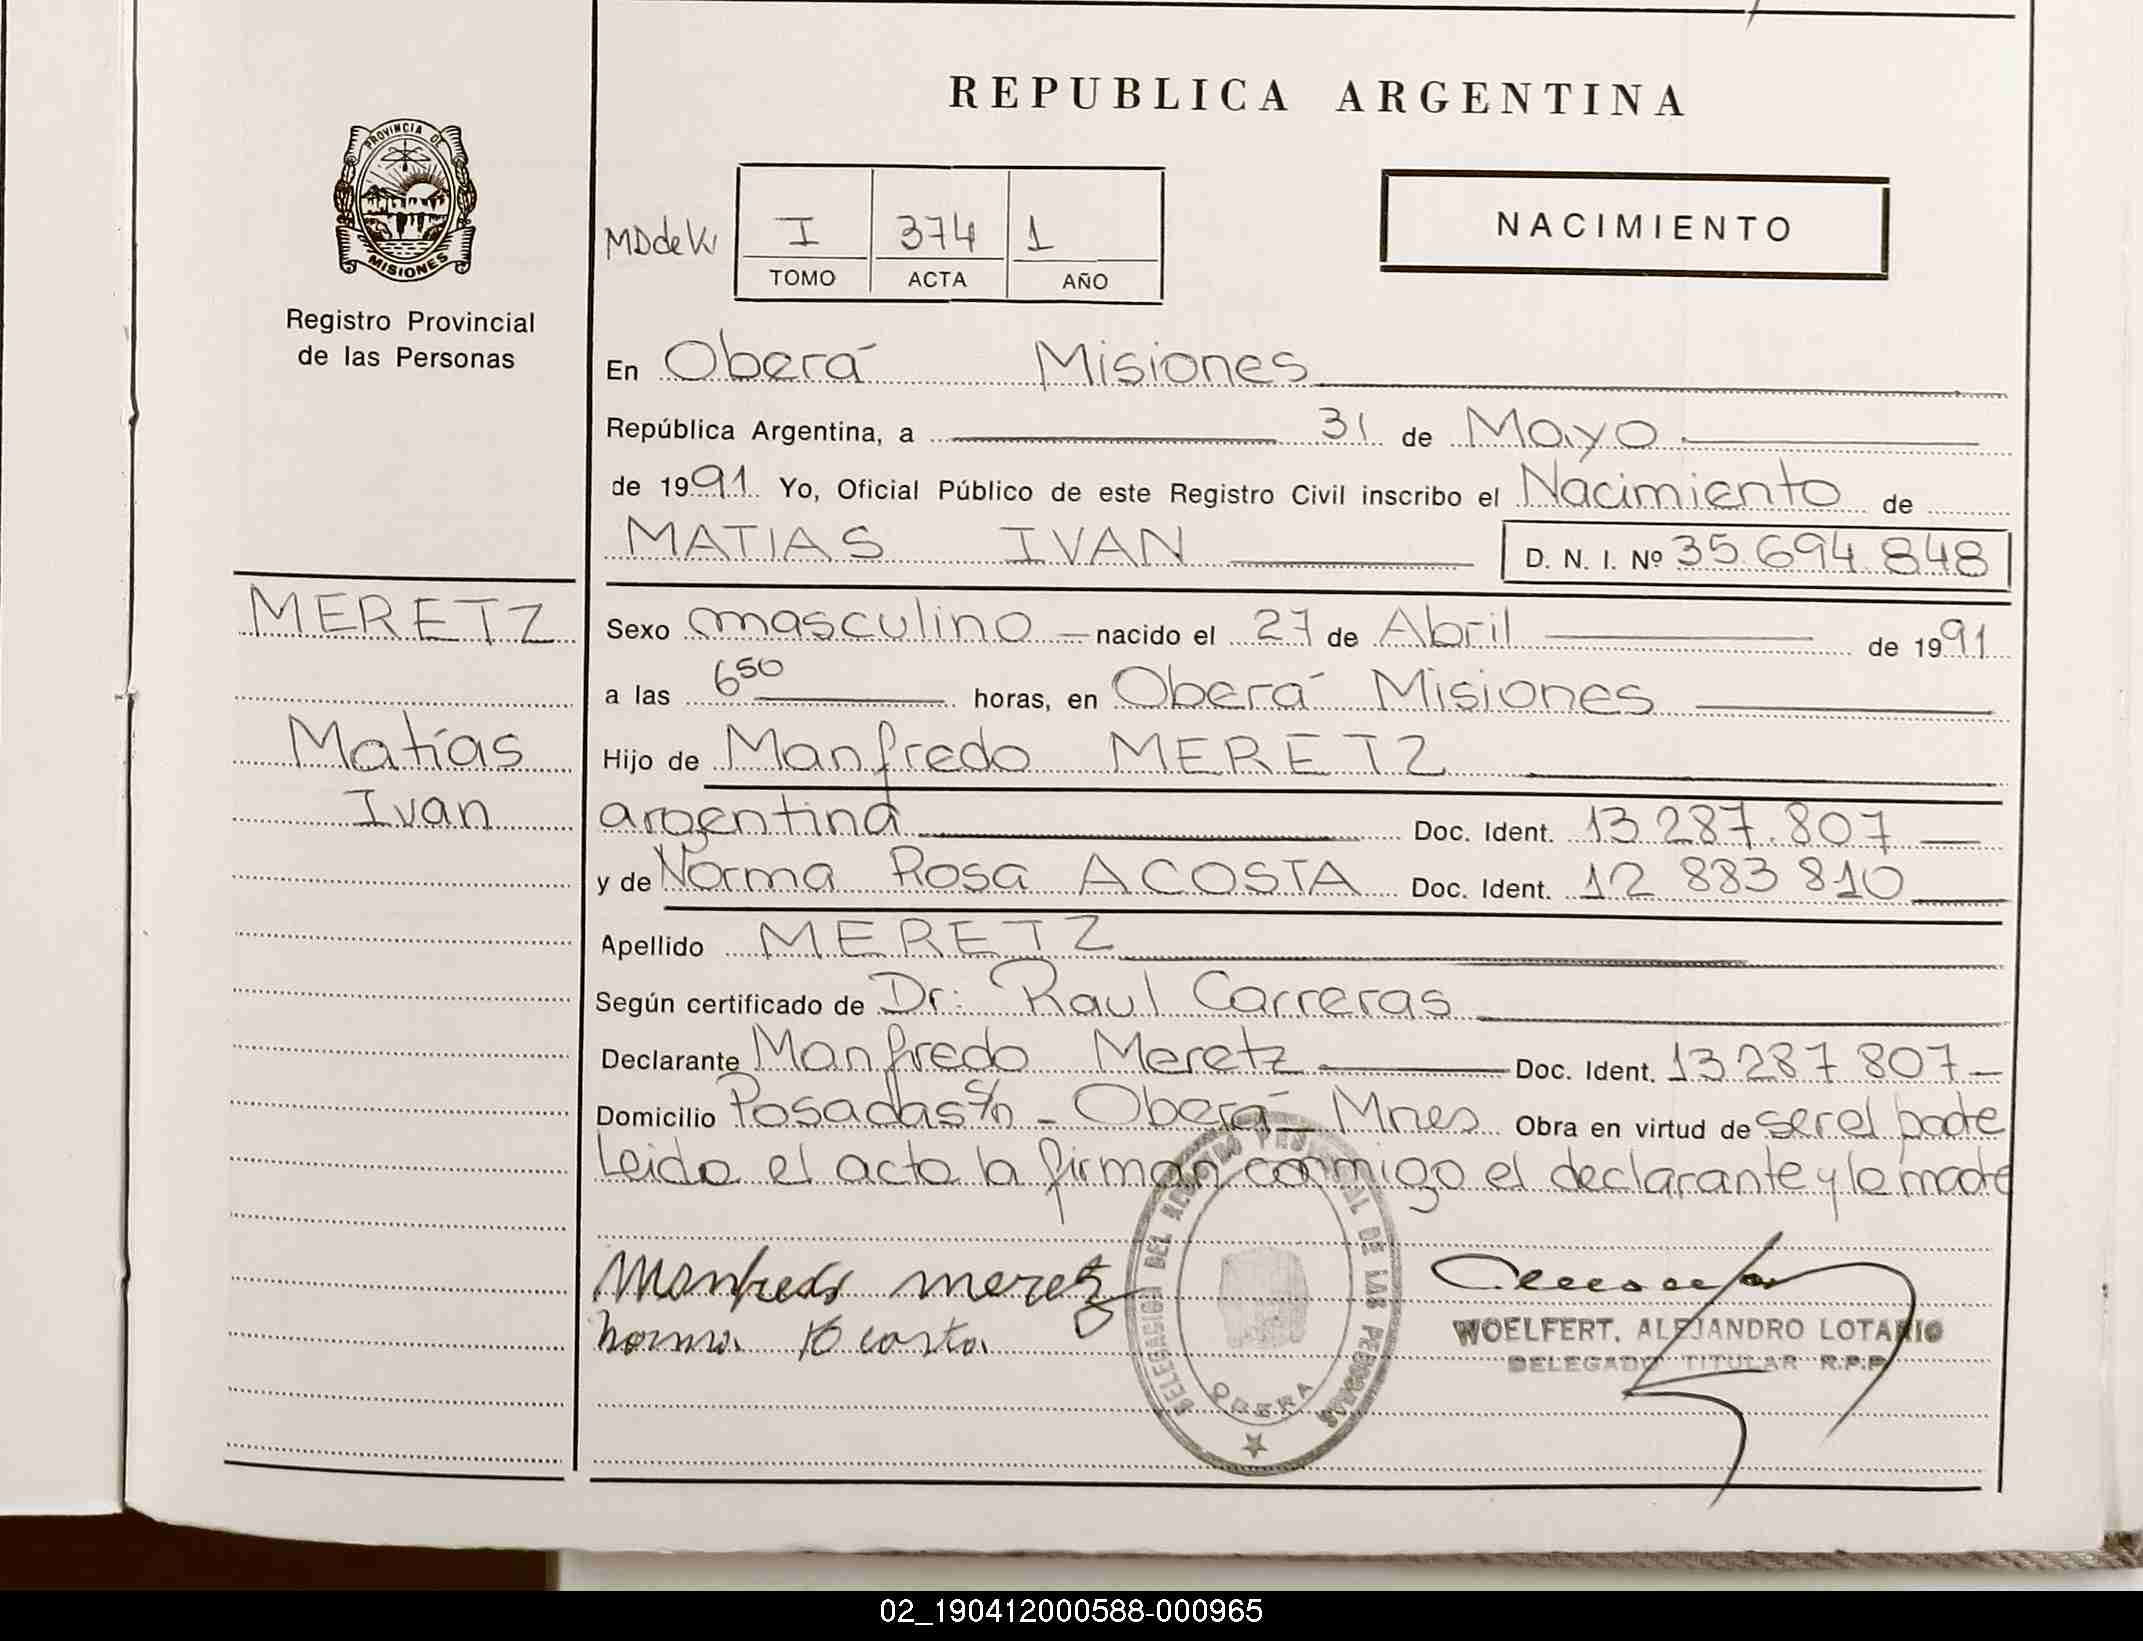 REPUBLICA ARGENTINA
PROVINCIA DE
MISIONES
Registro Provincial
de las Personas
I 374 1
TOMO ACTA AÑO
NACIMIENTO
En Oberá Misiones
República Argentina, a 31 de Mayo
de 1991. Yo, Oficial Público de este Registro Civil inscribo el Nacimiento de
MATIAS IVAN D. N. I. Nº 35.694.848
MERETZ
Matías
Ivan
Sexo masculino nacido el 27 de Abril de 1991
a las 6 50 horas, en Oberá Misiones
Hijo de Manfredo MERETZ
argentina Doc. Ident. 13.287.807
y de Norma Rosa ACOSTA Doc. Ident. 12 883 810
Apellido MERETZ
Según certificado de Dr: Raul Carreras
Declarante Manfredo Meretz Doc. Ident. 13 287 807
Domicilio Posadas s/n - Oberá - Mnes Obra en virtud de ser el padre
Leido el acta la firman conmigo el declarante y la madre
Manfredo meretz
norma
DELEGACION DEL REGISTRO PROVINCIAL DE LAS PERSONAS
OBERA
WOELFERT, ALEJANDRO LOTARIO
DELEGADO TITULAR R.P.P.
02_190412000588-000965